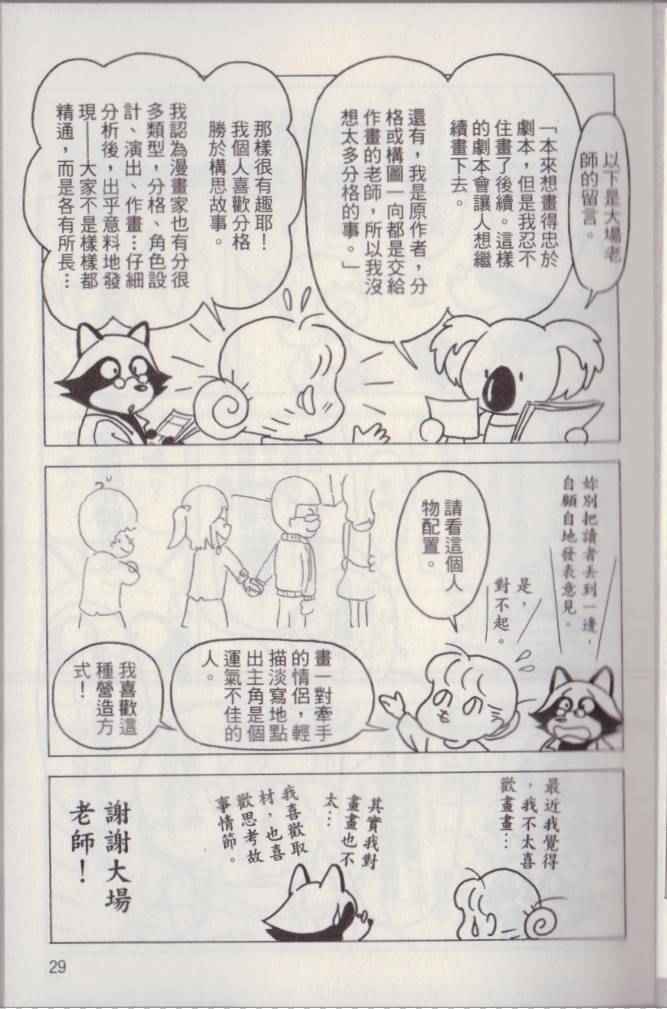 以下是大場老
師的留言。
「本來想畫得忠於
劇本，但是我忍不
住畫了後續。這樣
的劇本會讓人想繼
續畫下去。
還有，我是原作者，分
格或構圖一向都是交給
作畫的老師，所以我沒
想太多分格的事。」
那樣很有趣耶！
我個人喜歡分格
勝於構思故事。
我認為漫畫家也有分很
多類型，分格、角色設
計、演出、作畫…仔細
分析後，出乎意料地發
現──大家不是樣樣都
精通，而是各有所長…
妳別把讀者丟到一邊，
自顧自地發表意見。
是，
對不起。
請看這個人
物配置。
畫一對牽手
的情侶，輕
描淡寫地點
出主角是個
運氣不佳的
人。
我喜歡這
種營造方
式！
最近我覺得
，我不太喜
歡畫畫…
其實我對
畫畫也不
太…
我喜歡取
材，也喜
歡思考故
事情節。
謝謝大場
老師！
29